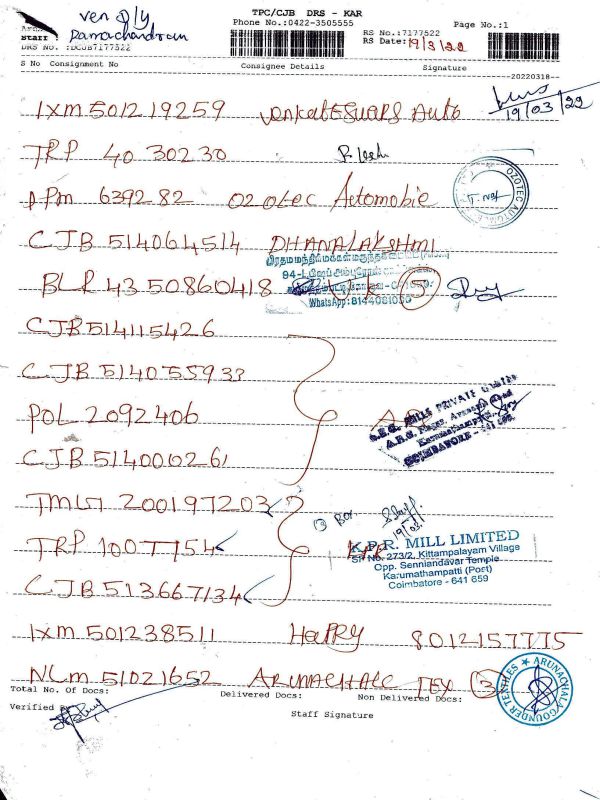 TPC/CJB DRS - KAR
Phone No.:0422-3505555
Page No.:1
ven
Ramachandran
Staff
DRS No. :DCJB7177522
RS No.:7177522
RS Date: 19/3/22
S No Consignment No Consignee Details Signature
20220318
19/03/22
IXM 501219259 Auto
TRP 4030230
PPM 6392 82 Ozotec Automobie
OZOTEC AUTOMOBILE
CJB 514064514 DHANALAKSHMI
WhatsApp: 8144081055
BLR 43 50860418 5
CJB 514115426
CJB 514055933
POL 2092406
A.R.G. MILLS PRIVATE
A.R.G. Nagar, Road
COIMBATORE
CJB 514000261
TMLT 200197203
3 Box
19/03/
TRP 1007754 KPR
K.P.R. MILL LIMITED
SF No. 273/2, Kittampalayam Village
Opp. Senniandavar Temple
Karumathampatti (Post)
Coimbatore - 641 659
CJB 513667134
IXM 501238511 Happy 8012157775
NLM 51021652 ARUNACHALA TEX 3
ARUNACHALA GOUNDER TEXTILES
Total No. Of Docs: Delivered Docs: Non Delivered Docs:
Verified By
Staff Signature